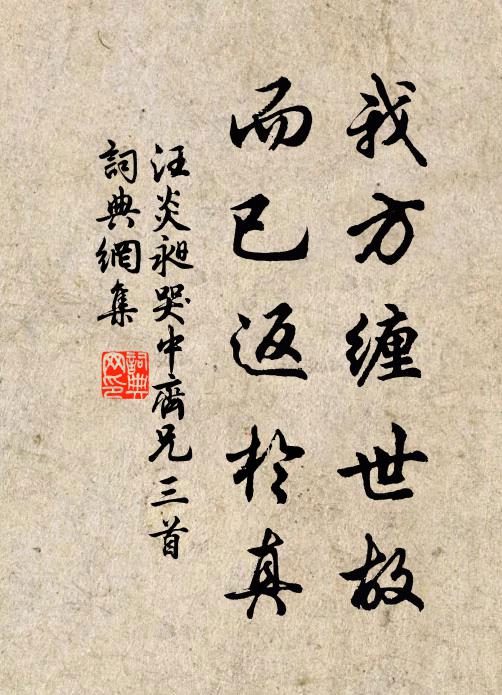 我方缠世故
而已返於真
汪炎昶哭中齋兄三首
詞典網集
詞典網印